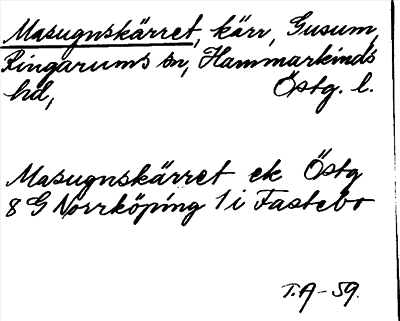 Masugnskärret, kärr, Gusum,
Ringarums sn, Hammarkinds
hd, Östg. l.
Masugnskärret ek Östg
8 G Norrköping 1 i Fastebo
T.A-59.